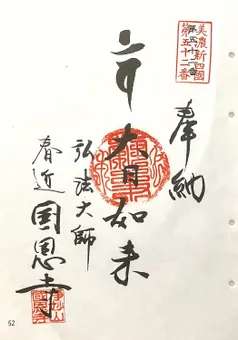 美濃新四國
第五十二番
奉納
大日如来
弘法大師
春近
国恩寺
52